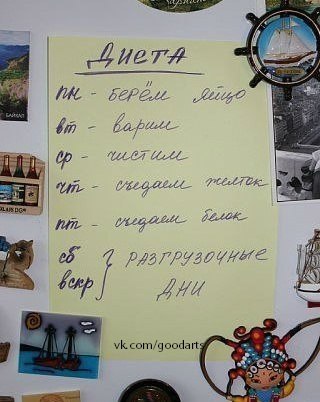 ДИЕТА
пн - берём яйцо
вт - варим
ср - чистим
чт - съедаем желток
пт - съедаем белок
сб } РАЗГРУЗОЧНЫЕ
вскр } ДНИ
vk.com/goodarts
БАЙКАЛ